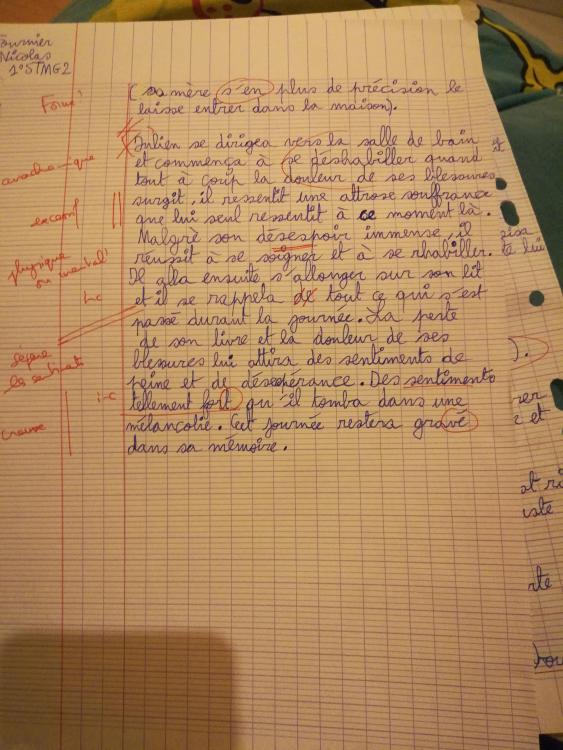 Fournier
Nicolas
1°STMG2
(sa mère s'en plus de précision le
laisse entrer dans la maison).
Julien se dirigea vers la salle de bain
et commença à se deshabiller quand
tout à coup la douleur de ses blessures
surgit, il ressentit une attrose souffrance
que lui seul ressentit à ce moment là.
Malgrè son désespoir immense, il
réussit à se soigner et à se rhabiller.
Il alla ensuite s'allonger sur son lit
physique
ou mental
et il se rappela de tout ce qui s'est
passé durant la journée. La perte
de son livre et la douleur de ses
blessures lui attira des sentiments de
peine et de déséspérance. Des sentiments
tellement fort qu'il tomba dans une
mélancolie. Cet journée restera gravé
dans sa mémoire.